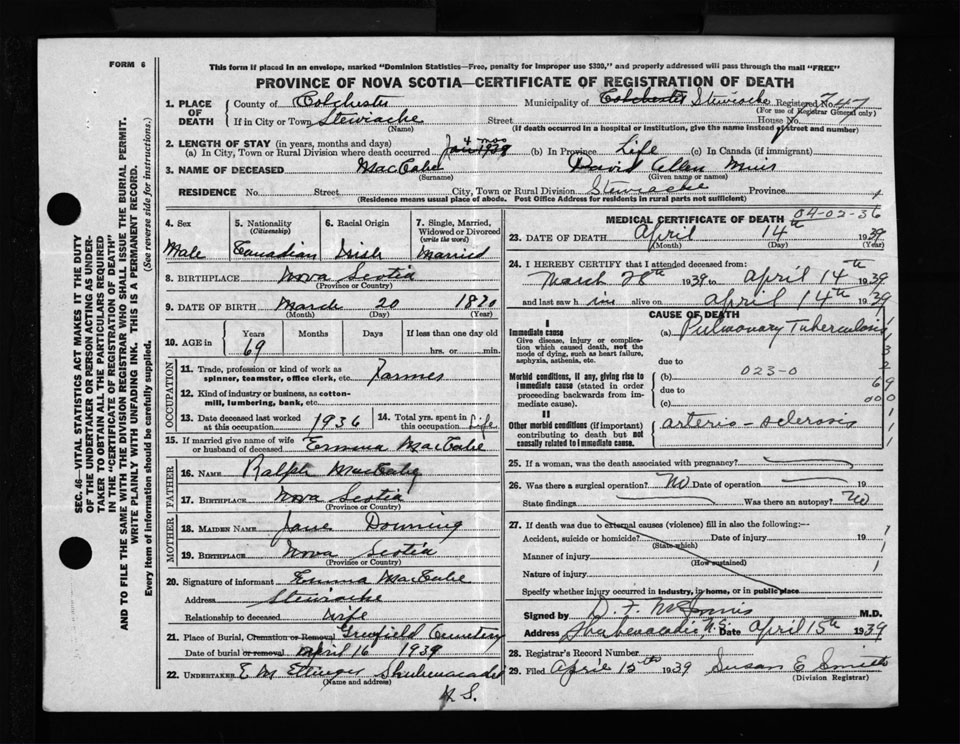 FORM 6
This form if placed in an envelope, marked "Dominion Statistics—Free, penalty for improper use $300," and properly addressed will pass through the mail "FREE"
PROVINCE OF NOVA SCOTIA—CERTIFICATE OF REGISTRATION OF DEATH
1. PLACE OF DEATH
County of Colchester Municipality of Colchester Stewiacke Registered No. 747
(For use of Registrar General only)
If in City or Town Stewiacke Street House No.
(Name) (If death occurred in a hospital or institution, give the name instead of street and number)
2. LENGTH OF STAY (in years, months and days) 4 mos
(a) In City, Town or Rural Division where death occurred Jan 1939 (b) In Province Life (c) In Canada (if immigrant)
3. NAME OF DECEASED MacCabe David Allen Muir
(Surname) (Given name or names)
RESIDENCE No. Street City, Town or Rural Division Stewiacke Province 1
(Residence means usual place of abode. Post Office Address for residents in rural parts not sufficient)
4. Sex 5. Nationality 6. Racial Origin 7. Single, Married, Widowed or Divorced
(Citizenship) (write the word)
Male Canadian Irish Married
8. BIRTHPLACE Nova Scotia
(Province or Country)
9. DATE OF BIRTH March 20 1870
(Month) (Day) (Year)
10. AGE in Years Months Days If less than one day old
69 hrs. or min.
OCCUPATION
11. Trade, profession or kind of work as spinner, teamster, office clerk, etc. Farmer
12. Kind of industry or business, as cotton-mill, lumbering, bank, etc.
13. Date deceased last worked at this occupation 1936 14. Total yrs. spent in this occupation Life
15. If married give name of wife or husband of deceased Emma MacCabe
FATHER
16. NAME Ralph MacCabe
17. BIRTHPLACE Nova Scotia
(Province or Country)
MOTHER
18. MAIDEN NAME Jane Downing
19. BIRTHPLACE Nova Scotia
(Province or Country)
20. Signature of informant Emma MacCabe
Address Stewiacke
Relationship to deceased wife
21. Place of Burial, Cremation or Removal Greenfield Cemetery
Date of burial or removal April 16 1939
22. UNDERTAKER E M Ettinger Shubenacadie
(Name and address)
N. S.
MEDICAL CERTIFICATE OF DEATH 04-02-36
23. DATE OF DEATH April 14th 1939
(Month) (Day) (Year)
24. I HEREBY CERTIFY that I attended deceased from:
March 28th 1939 to April 14th 1939
and last saw him alive on April 14th 1939
CAUSE OF DEATH
I
Immediate cause (a) Pulmonary Tuberculosis
Give disease, injury or complication which caused death, not the mode of dying, such as heart failure, asphyxia, asthenia, etc.
due to
Morbid conditions, if any, giving rise to immediate cause (stated in order proceeding backwards from immediate cause).
(b) 023-0
due to 69
(c) 000
II
Other morbid conditions (if important) contributing to death but not causally related to immediate cause. arterio-sclerosis
25. If a woman, was the death associated with pregnancy?
26. Was there a surgical operation? No Date of operation 19
State findings Was there an autopsy? No
27. If death was due to external causes (violence) fill in also the following:—
Accident, suicide or homicide? Date of injury 19
(State which)
Manner of injury
(How sustained)
Nature of injury
Specify whether injury occurred in industry, in home, or in public place
Signed by M.D.
Address Shubenacadie, N.S. Date April 15th 1939
28. Registrar's Record Number
29. Filed April 15th 1939 Susan E Smith
(Division Registrar)
SEC. 46—VITAL STATISTICS ACT MAKES IT THE DUTY
OF THE UNDERTAKER OR PERSON ACTING AS UNDER-
TAKER TO OBTAIN ALL THE PARTICULARS REQUIRED
IN THE "CERTIFICATE OF REGISTRATION OF DEATH"
AND TO FILE THE SAME WITH THE DIVISION REGISTRAR WHO SHALL ISSUE THE BURIAL PERMIT.
WRITE PLAINLY WITH UNFADING INK. THIS IS A PERMANENT RECORD.
Every item of information should be carefully supplied. (See reverse side for instructions.)